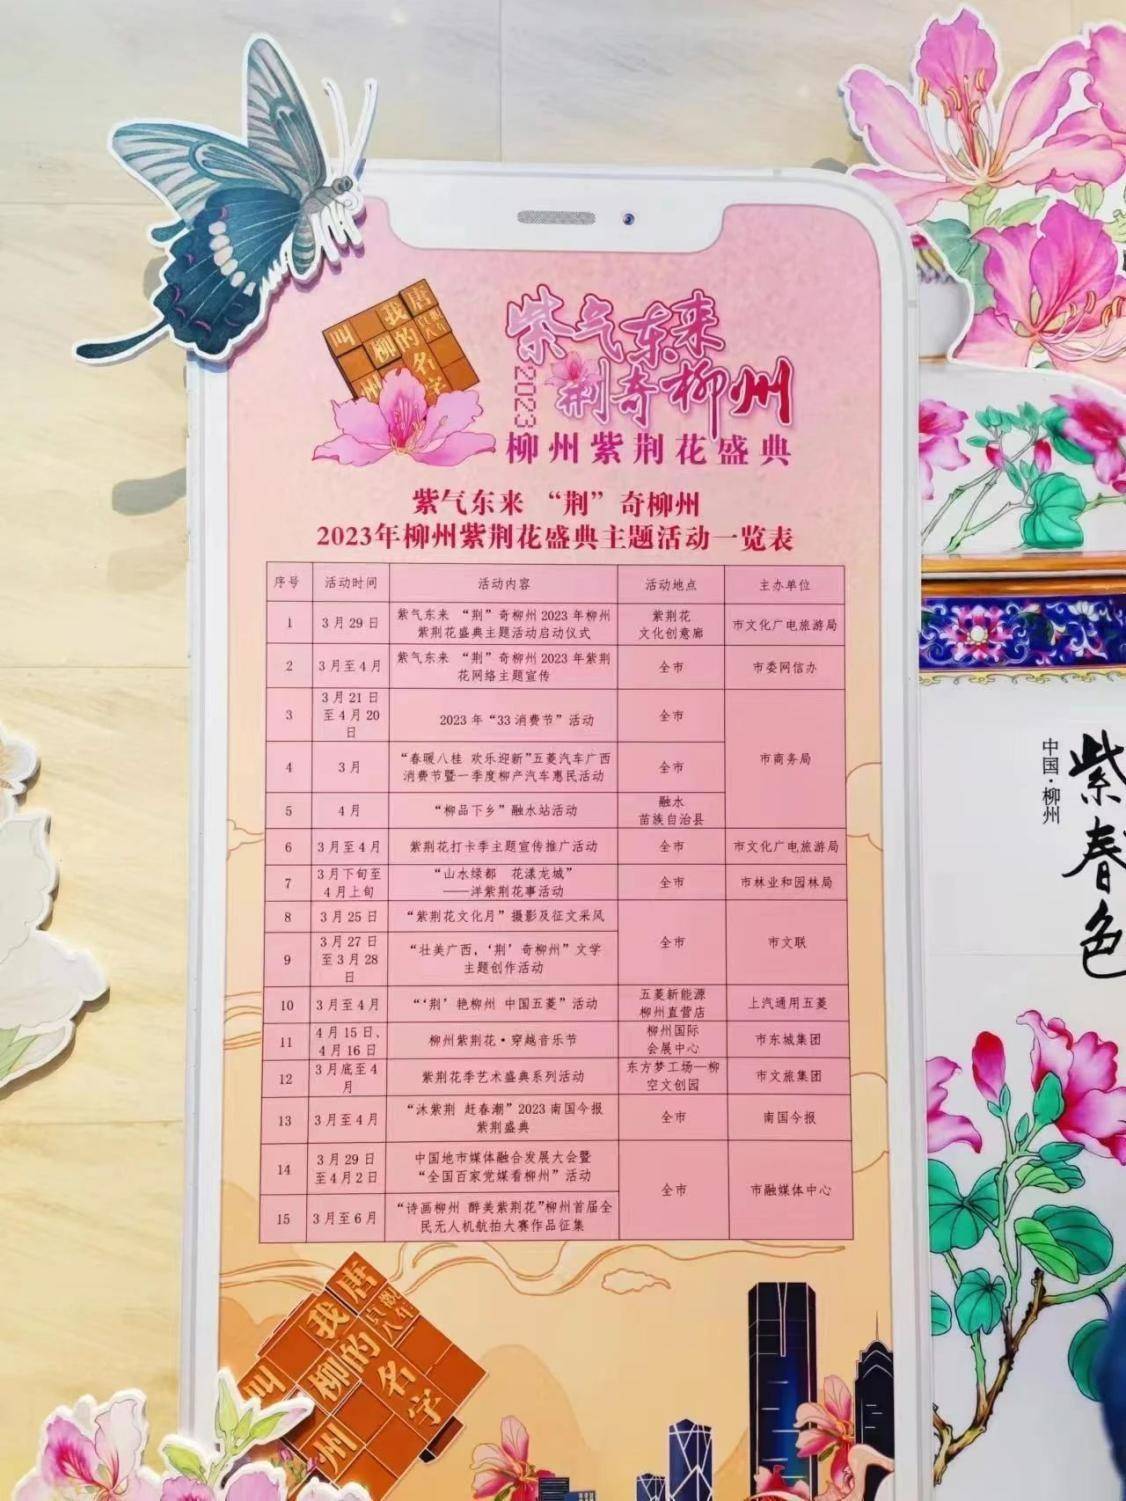 唐
我 貞觀
叫 的 八年
柳 名
州 字
紫气东来
2023 荆奇柳州
柳州紫荆花盛典
紫气东来 “荆”奇柳州
2023年柳州紫荆花盛典主题活动一览表
序号 活动时间 活动内容 活动地点 主办单位
1 3月29日 紫气东来 “荆”奇柳州2023年柳州
紫荆花盛典主题活动启动仪式 紫荆花
文化创意廊 市文化广电旅游局
2 3月至4月 紫气东来 “荆”奇柳州2023年紫荆
花网络主题宣传 全市 市委网信办
3 3月21日
至4月20
日 2023年“33消费节”活动 全市 市商务局
4 3月 “春暖八桂 欢乐迎新”五菱汽车广西
消费节暨一季度柳产汽车惠民活动 全市
5 4月 “柳品下乡”融水站活动 融水
苗族自治县
6 3月至4月 紫荆花打卡季主题宣传推广活动 全市 市文化广电旅游局
7 3月下旬至
4月上旬 “山水绿都 花漾龙城”
——洋紫荆花事活动 全市 市林业和园林局
8 3月25日 “紫荆花文化月”摄影及征文采风 全市 市文联
9 3月27日
至3月28
日 “壮美广西，‘荆’奇柳州”文学
主题创作活动
10 3月至4月 “‘荆’艳柳州 中国五菱”活动 五菱新能源
柳州直营店 上汽通用五菱
11 4月15日、
4月16日 柳州紫荆花·穿越音乐节 柳州国际
会展中心 市东城集团
12 3月底至4
月 紫荆花季艺术盛典系列活动 东方梦工场—柳
空文创园 市文旅集团
13 3月至4月 “沐紫荆 赶春潮”2023南国今报
紫荆盛典 全市 南国今报
14 3月29日
至4月2日 中国地市媒体融合发展大会暨
“全国百家党媒看柳州”活动 全市 市融媒体中心
15 3月至6月 “诗画柳州 醉美紫荆花”柳州首届全
民无人机航拍大赛作品征集
唐
我 貞觀
叫 的 八年
柳 名
州 字
中国·柳州
紫春色